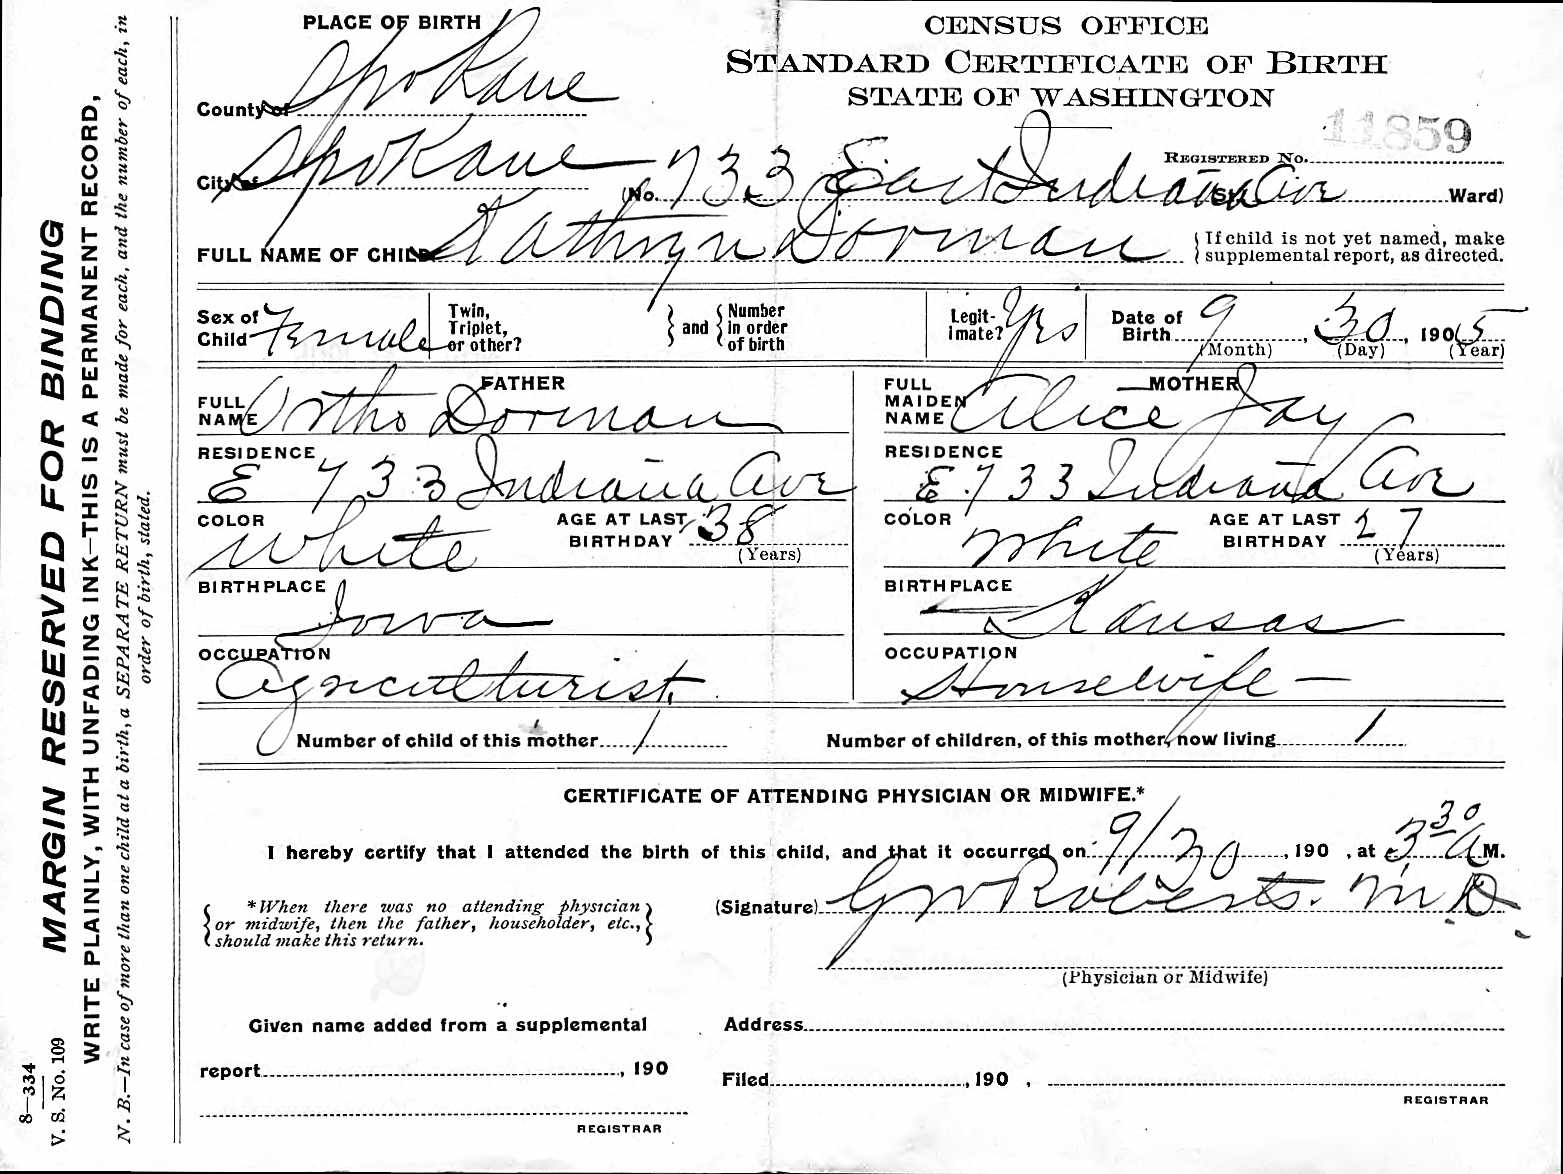 MARGIN RESERVED FOR BINDING
WRITE PLAINLY, WITH UNFADING INK—THIS IS A PERMANENT RECORD,
N. B.—In case of more than one child at a birth, a SEPARATE RETURN must be made for each, and the number of each, in
order of birth, stated.
8—334
V. S. No. 109
PLACE OF BIRTH
CENSUS OFFICE
STANDARD CERTIFICATE OF BIRTH
STATE OF WASHINGTON
11859
County of Spokane
REGISTERED No.
City of Spokane (No. 733 East Indiana St. Ave Ward)
FULL NAME OF CHILD Kathryn Dorman {If child is not yet named, make
supplemental report, as directed.
Sex of Child Female
Twin, Triplet, or other? } and { Number in order of birth
Legitimate? Yes
Date of Birth 9, 30, 1905
(Month) (Day) (Year)
FATHER
FULL NAME Ortho Dorman
RESIDENCE E 733 Indiana Ave
COLOR White AGE AT LAST BIRTHDAY 38
(Years)
BIRTHPLACE Iowa
OCCUPATION Agriculturist
MOTHER
FULL MAIDEN NAME Alice Jay
RESIDENCE E. 733 Indiana Ave
COLOR White AGE AT LAST BIRTHDAY 27
(Years)
BIRTHPLACE Kansas
OCCUPATION Housewife —
Number of child of this mother 1 Number of children, of this mother, now living 1
CERTIFICATE OF ATTENDING PHYSICIAN OR MIDWIFE.*
I hereby certify that I attended the birth of this child, and that it occurred on 9/30, 190 , at 3 30 A M.
{*When there was no attending physician
or midwife, then the father, householder, etc.,
should make this return.}
(Signature) GW Roberts. M.D.
(Physician or Midwife)
Given name added from a supplemental
report, 190
REGISTRAR
Address
Filed, 190 ,
REGISTRAR